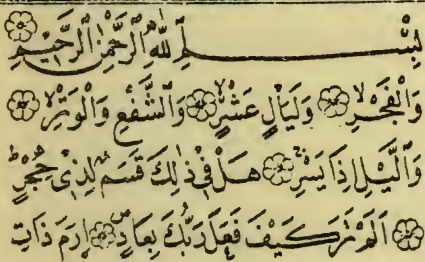 بِسْمِ اللّٰهِ الرَّحْمٰنِ الرَّحِيْمِ
وَالْفَجْرِۙ وَلَيَالٍ عَشْرٍۙ وَالشَّفْعِ وَالْوَتْرِۙ
وَالَّيْلِ اِذَا يَسْرِۚ هَلْ فِيْ ذٰلِكَ قَسَمٌ لِذِيْ حِجْرٍؕ
اَلَمْ تَرَ كَيْفَ فَعَلَ رَبُّكَ بِعَادٍۙ اِرَمَ ذَاتِ